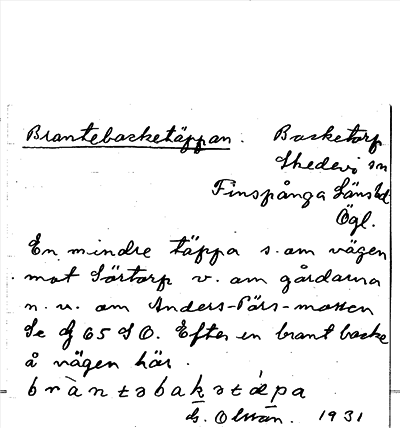 Brantebacketäppan. Backetorp
Skedevi sn
Finspånga Länshd
Ögl.
En mindre täppa s. om vägen
mot Sörtorp v. om gårdarna
n. v. om Anders-Pärs-mossen
Se 65 SO. Efter en brant backe
å vägen här.
bràntəbakətǽpa
G. Olsson. 1931